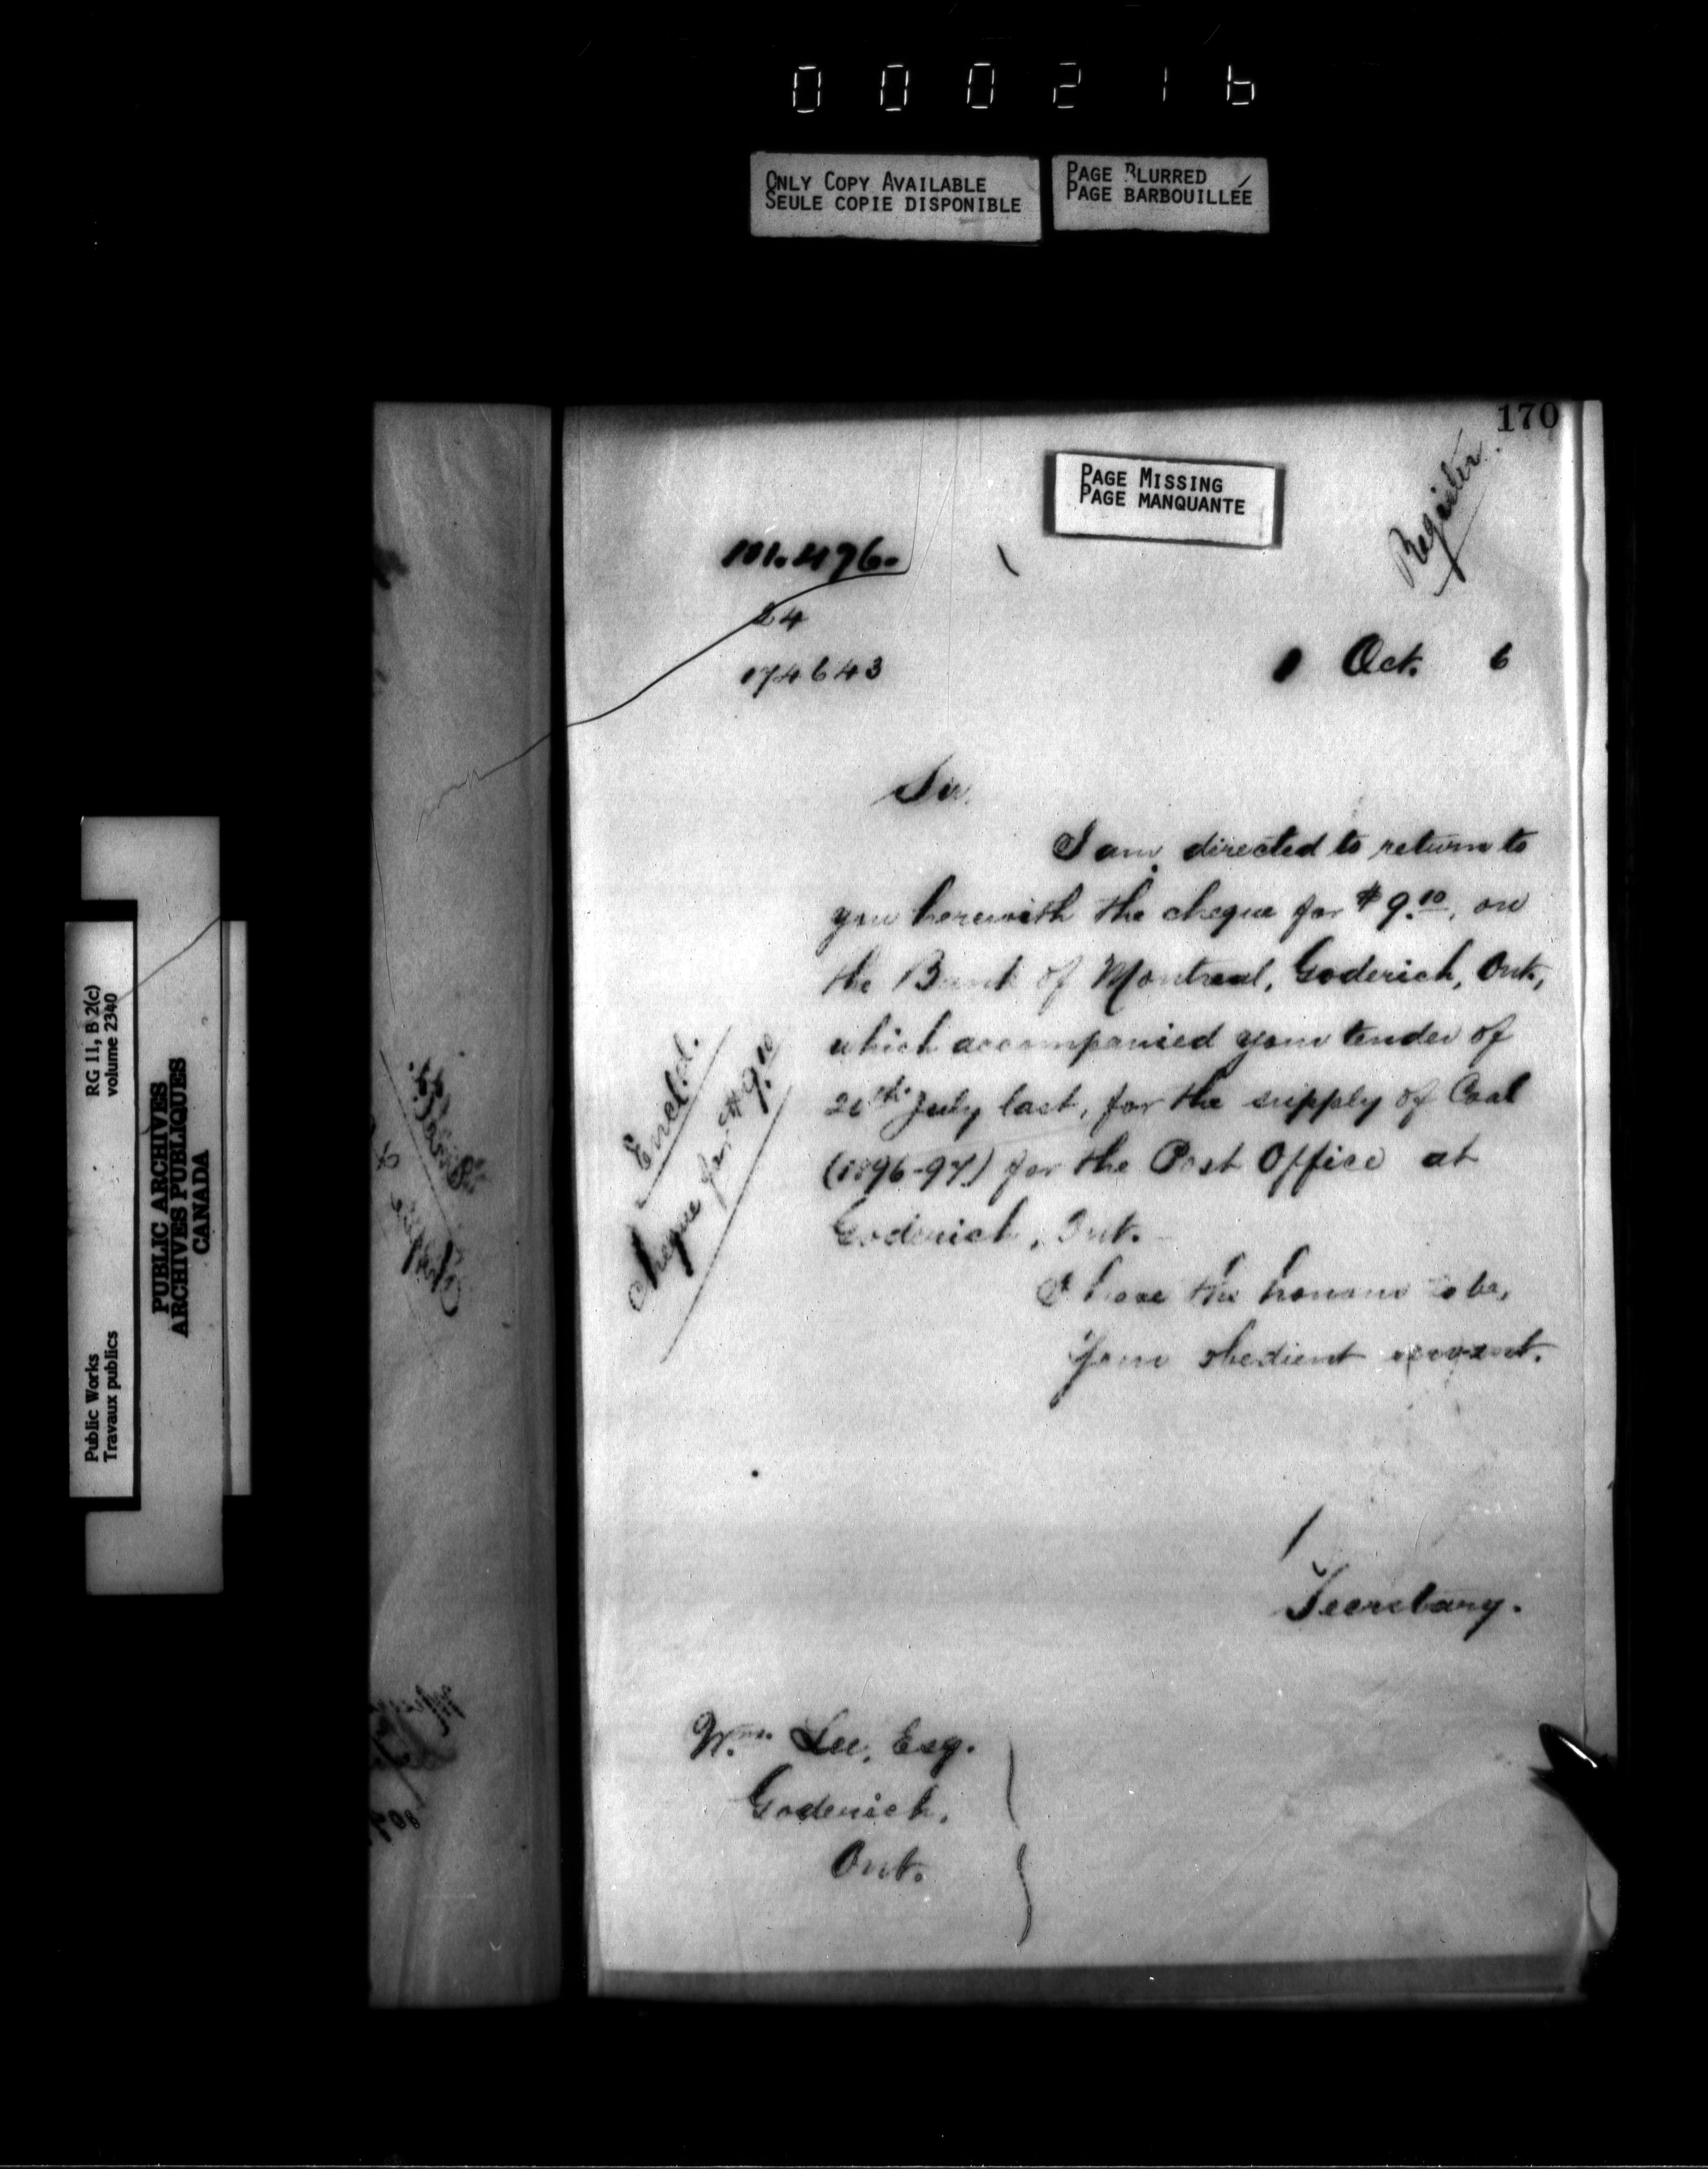 000216
ONLY COPY AVAILABLE
SEULE COPIE DISPONIBLE
PAGE BLURRED
PAGE BARBOUILLÉE
170
PAGE MISSING
PAGE MANQUANTE
Register.
101.476.
24
174643
1 Oct. 6
Sir,
I am directed to return to
you herewith the cheque for $9.10, on
the Bank of Montreal, Goderich, Ont,
which accompanied your tender of
July last, for the supply of Coal
(1896-97) for the Post Office at
Goderich, Ont.
I have the honour to be,
Your obedient servant.
Secretary.
Encl.d.
Cheque for $9.10
Wm. Lee, Esq.
Goderich,
Ont.
RG 11, B 2(c)
volume 2340
PUBLIC ARCHIVES
ARCHIVES PUBLIQUES
CANADA
Public Works
Travaux publics